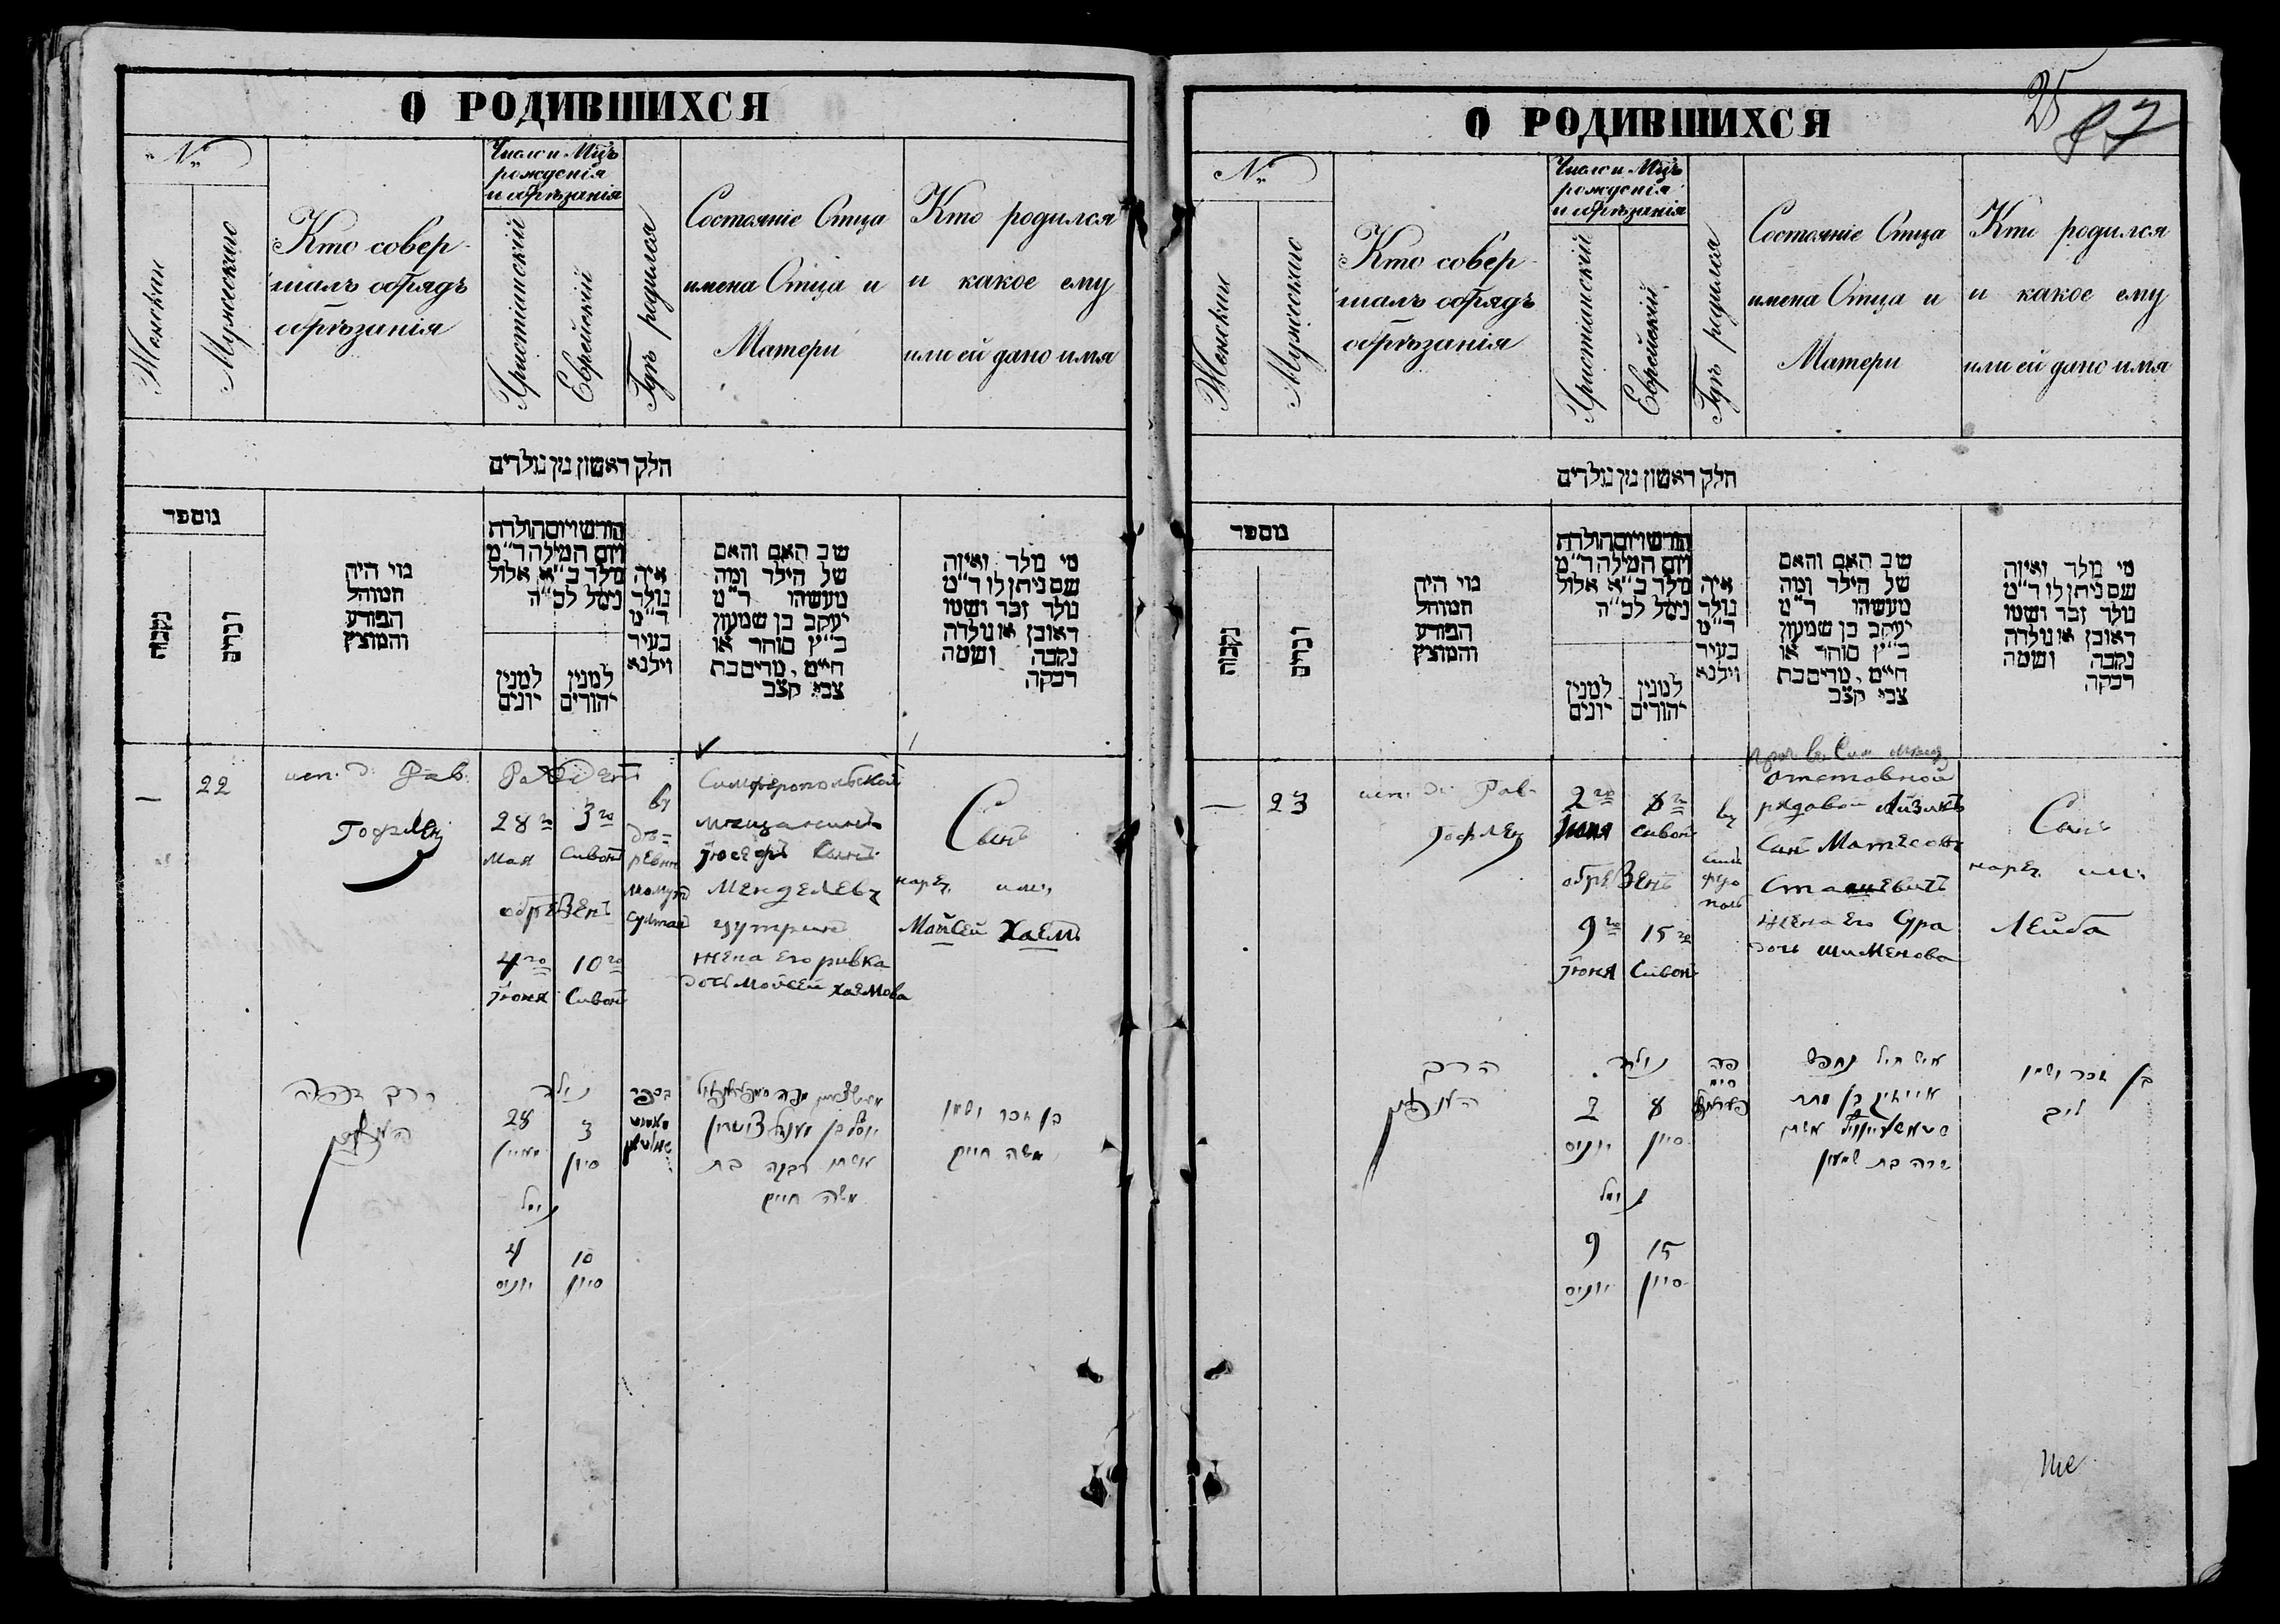 О РОДИВШИХСЯ
№
Женскии
Мужескаго
Кто совер-
шалъ обрядъ
обрѣзанія
Число и Мцъ
рожденія
и обрѣзанія
Христіанскій
Еврейскій
Гдѣ родился
Состояніе Отца
имена Отца и
Матери
Кто родился
и какое ему
или ей дано имя
חלק ראשון מן נולדים
נומפר
נקבות
זכרים
מי היה
המוהל
הפורע
והמוצץ
חודש ויום הולדת
ויום המילה ד״מ
נולד כ״א אלול
נימל לכ״ה
למנין
יונים
למנין
יהודים
איה
נולד
ד״מ
בעיר
ווילנא
שם האב והאם
של הילד ומה
מעשהו ד״מ
יעקב בן שמעון
כ״ץ סוחר או
חייט, מרים בת
צבי קצב
מי נולד ואיזה
שם ניתן לו ד״מ
נולד זכר ושמו
ראובן או נולדה
נקבה ושמה
רבקה
—
22
исп. д. Рав.
Гофмен
Рожден
28го
Мая
3го
Сивон
обрезен
4го
Июня
10го
Сивон
въ
де=
ревни
Султан
Симферопольской
мещанинъ
Иосефъ Синъ
Менделевъ
жена его ривка
дочь Мойсей Хаемова
Синъ
нарец. имя
Мойсей Хаемъ
הרב
נולד
28
3
סיון
נימול
4
יוניס
10
סיון
אשתו רבקה בת
משה חיים
בן זכר ושמו
משה חיים
25
87
О РОДИВШИХСЯ
№
Женскии
Мужескаго
Кто совер-
шалъ обрядъ
обрѣзанія
Число и Мцъ
рожденія
и обрѣзанія
Христіанскій
Еврейскій
Гдѣ родился
Состояніе Отца
имена Отца и
Матери
Кто родился
и какое ему
или ей дано имя
חלק ראשון מן נולדים
נומפר
נקבות
זכרים
מי היה
המוהל
הפורע
והמוצץ
חודש ויום הולדת
ויום המילה ד״מ
נולד כ״א אלול
נימל לכ״ה
למנין
יונים
למנין
יהודים
איה
נולד
ד״מ
בעיר
ווילנא
שם האב והאם
של הילד ומה
מעשהו ד״מ
יעקב בן שמעון
כ״ץ סוחר או
חייט, מרים בת
צבי קצב
מי נולד ואיזה
שם ניתן לו ד״מ
נולד זכר ושמו
ראובן או נולדה
נקבה ושמה
רבקה
—
23
исп. д. Рав.
Гофмен
2го
Июня
8го
Сивон
обрезенъ
9го
Июня
15го
Сивон
въ
Сим
феро
поль
отставной
рядовой Айзикъ
Синъ
жена его Сура
дочь Шименова
Синъ
нарец. имя
Лейба
הרב
נולד
2
יוניס
8
סיון
נימול
9
יוניס
15
סיון
פה
סימ
איש חיל
אייזיק בן
אשתו
שרה בת שמעון
בן זכר ושמו
ליב